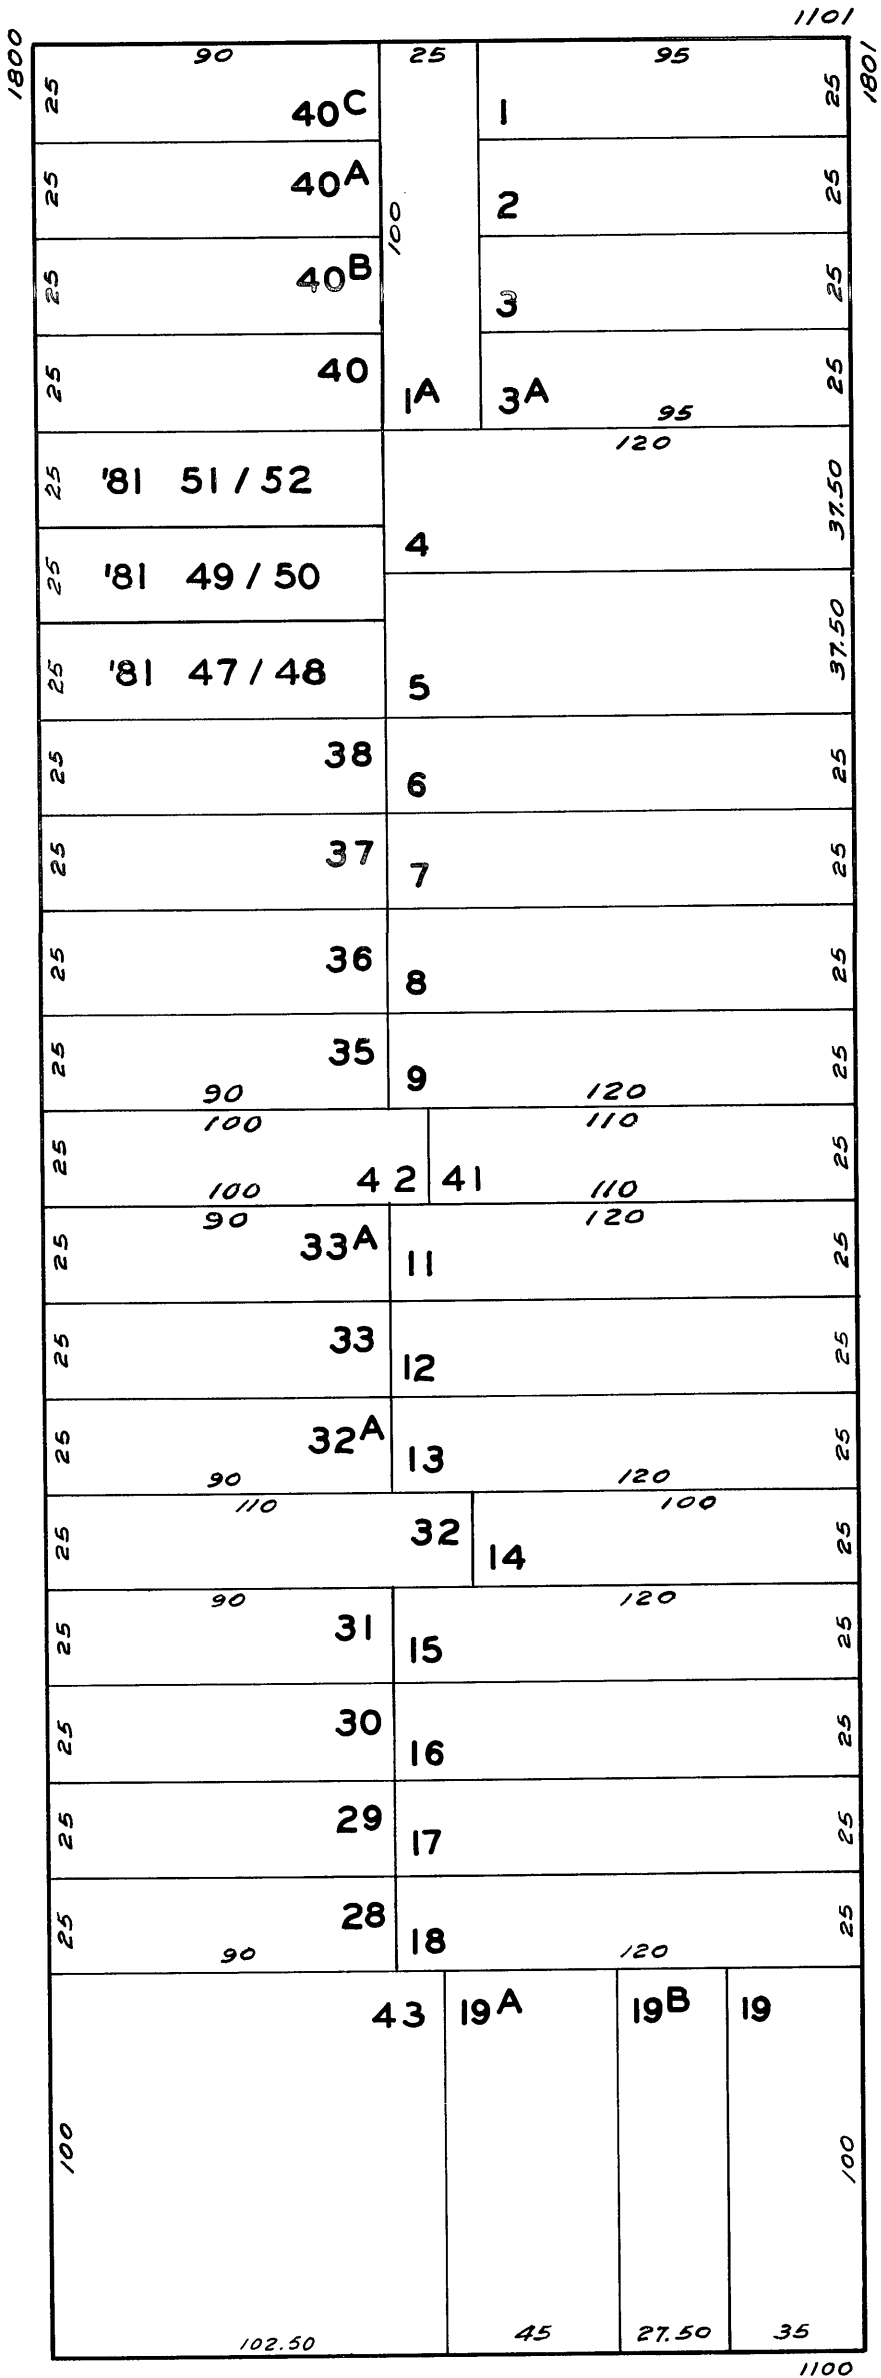 1101
1800 90 25 95 1801
25 40C 1 25
25 40A 100 2 25
25 40B 3 25
25 40 1A 3A 95 25
120
25 '81 51 / 52 4 37.50
25 '81 49 / 50
25 '81 47 / 48 5 37.50
25 38 6 25
25 37 7 25
25 36 8 25
25 35 9 25
90 120
100 110
25 42 41 25
100 110
90 120
25 33A 11 25
25 33 12 25
25 32A 13 25
90 120
110 100
25 32 14 25
90 120
25 31 15 25
25 30 16 25
25 29 17 25
25 28 18 25
90 120
43 19A 19B 19
100 100
102.50 45 27.50 35
1100